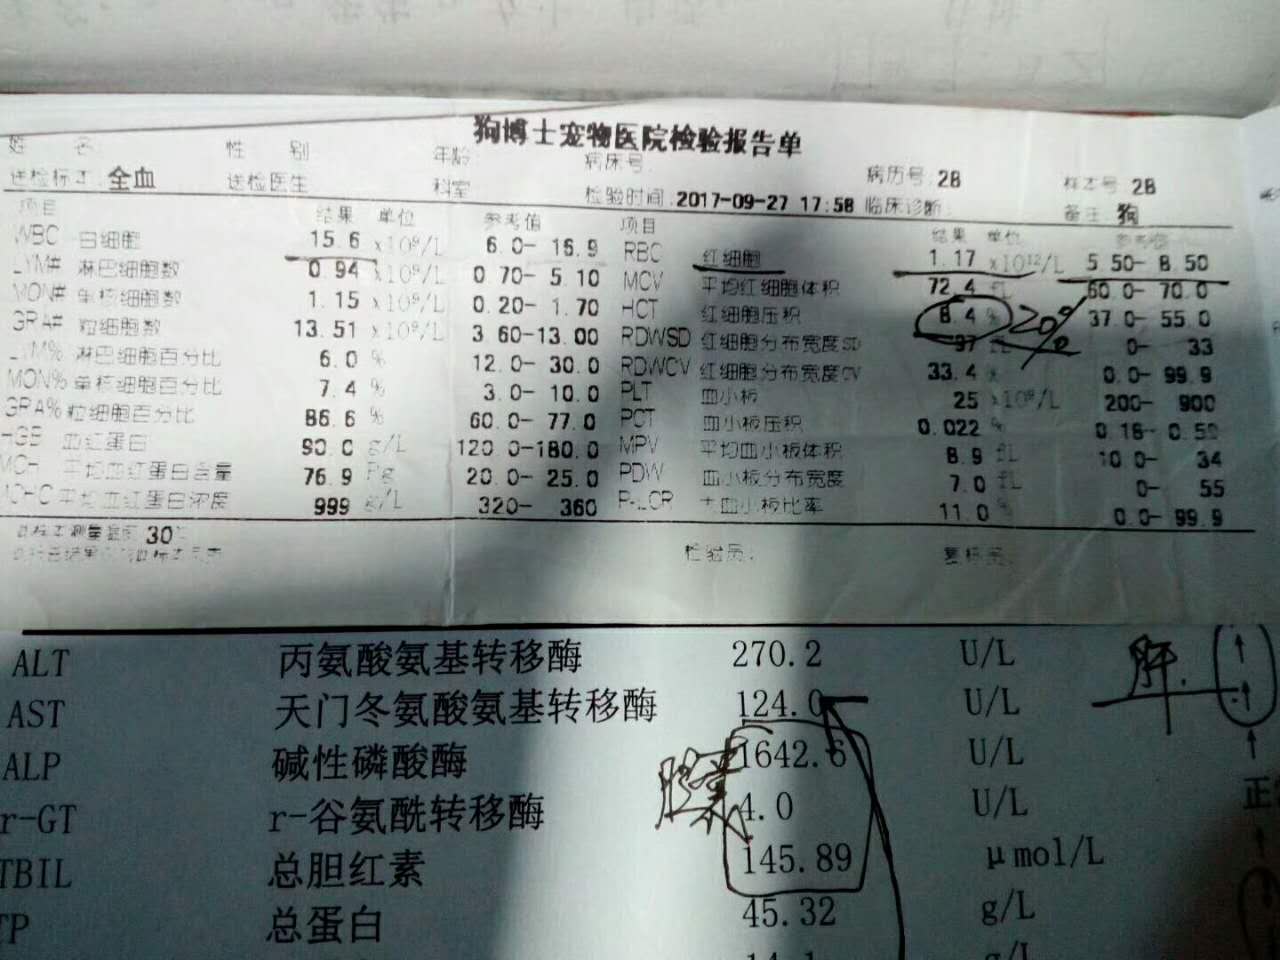 狗博士宠物医院检验报告单
姓 名: 性 别: 年龄: 病床号: 病历号: 2B 样本号: 2B
送检标本: 全血 送检医生 科室 检验时间: 2017-09-27 17:58 临床诊断: 备注: 狗
项目 结果 单位 参考值 项目 结果 单位 参考值
WBC 白细胞 15.6 x10⁹/L 6.0- 16.9 RBC 红细胞 1.17 x10¹²/L 5.50- 8.50
LYM# 淋巴细胞数 0.94 x10⁹/L 0.70- 5.10 MCV 平均红细胞体积 72.4 fL 60.0- 70.0
MON# 单核细胞数 1.15 x10⁹/L 0.20- 1.70 HCT 红细胞压积 8.4 % 20% 37.0- 55.0
GRA# 粒细胞数 13.51 x10⁹/L 3.60-13.00 RDWSD 红细胞分布宽度SD 97 fL 0- 33
LYM% 淋巴细胞百分比 6.0 % 12.0- 30.0 RDWCV 红细胞分布宽度CV 33.4 % 0.0- 99.9
MON% 单核细胞百分比 7.4 % 3.0- 10.0 PLT 血小板 25 x10⁹/L 200- 900
GRA% 粒细胞百分比 86.6 % 60.0- 77.0 PCT 血小板压积 0.022 % 0.16- 0.50
HGB 血红蛋白 90.0 g/L 120.0-180.0 MPV 平均血小板体积 8.9 fL 10.0- 34
MCH 平均血红蛋白含量 76.9 Pg 20.0- 25.0 PDW 血小板分布宽度 7.0 fL 0- 55
MCHC 平均血红蛋白浓度 999 g/L 320- 360 P-LCR 大血小板比率 11.0 % 0.0- 99.9
30℃ 检验员:
ALT 丙氨酸氨基转移酶 270.2 U/L 肝. ↑
AST 天门冬氨酸氨基转移酶 124.0 U/L ↑
ALP 碱性磷酸酶 1642.6 U/L ↑
r-GT r-谷氨酰转移酶 胆囊 4.0 U/L 正
TBIL 总胆红素 145.89 μmol/L ↑
TP 总蛋白 45.32 g/L